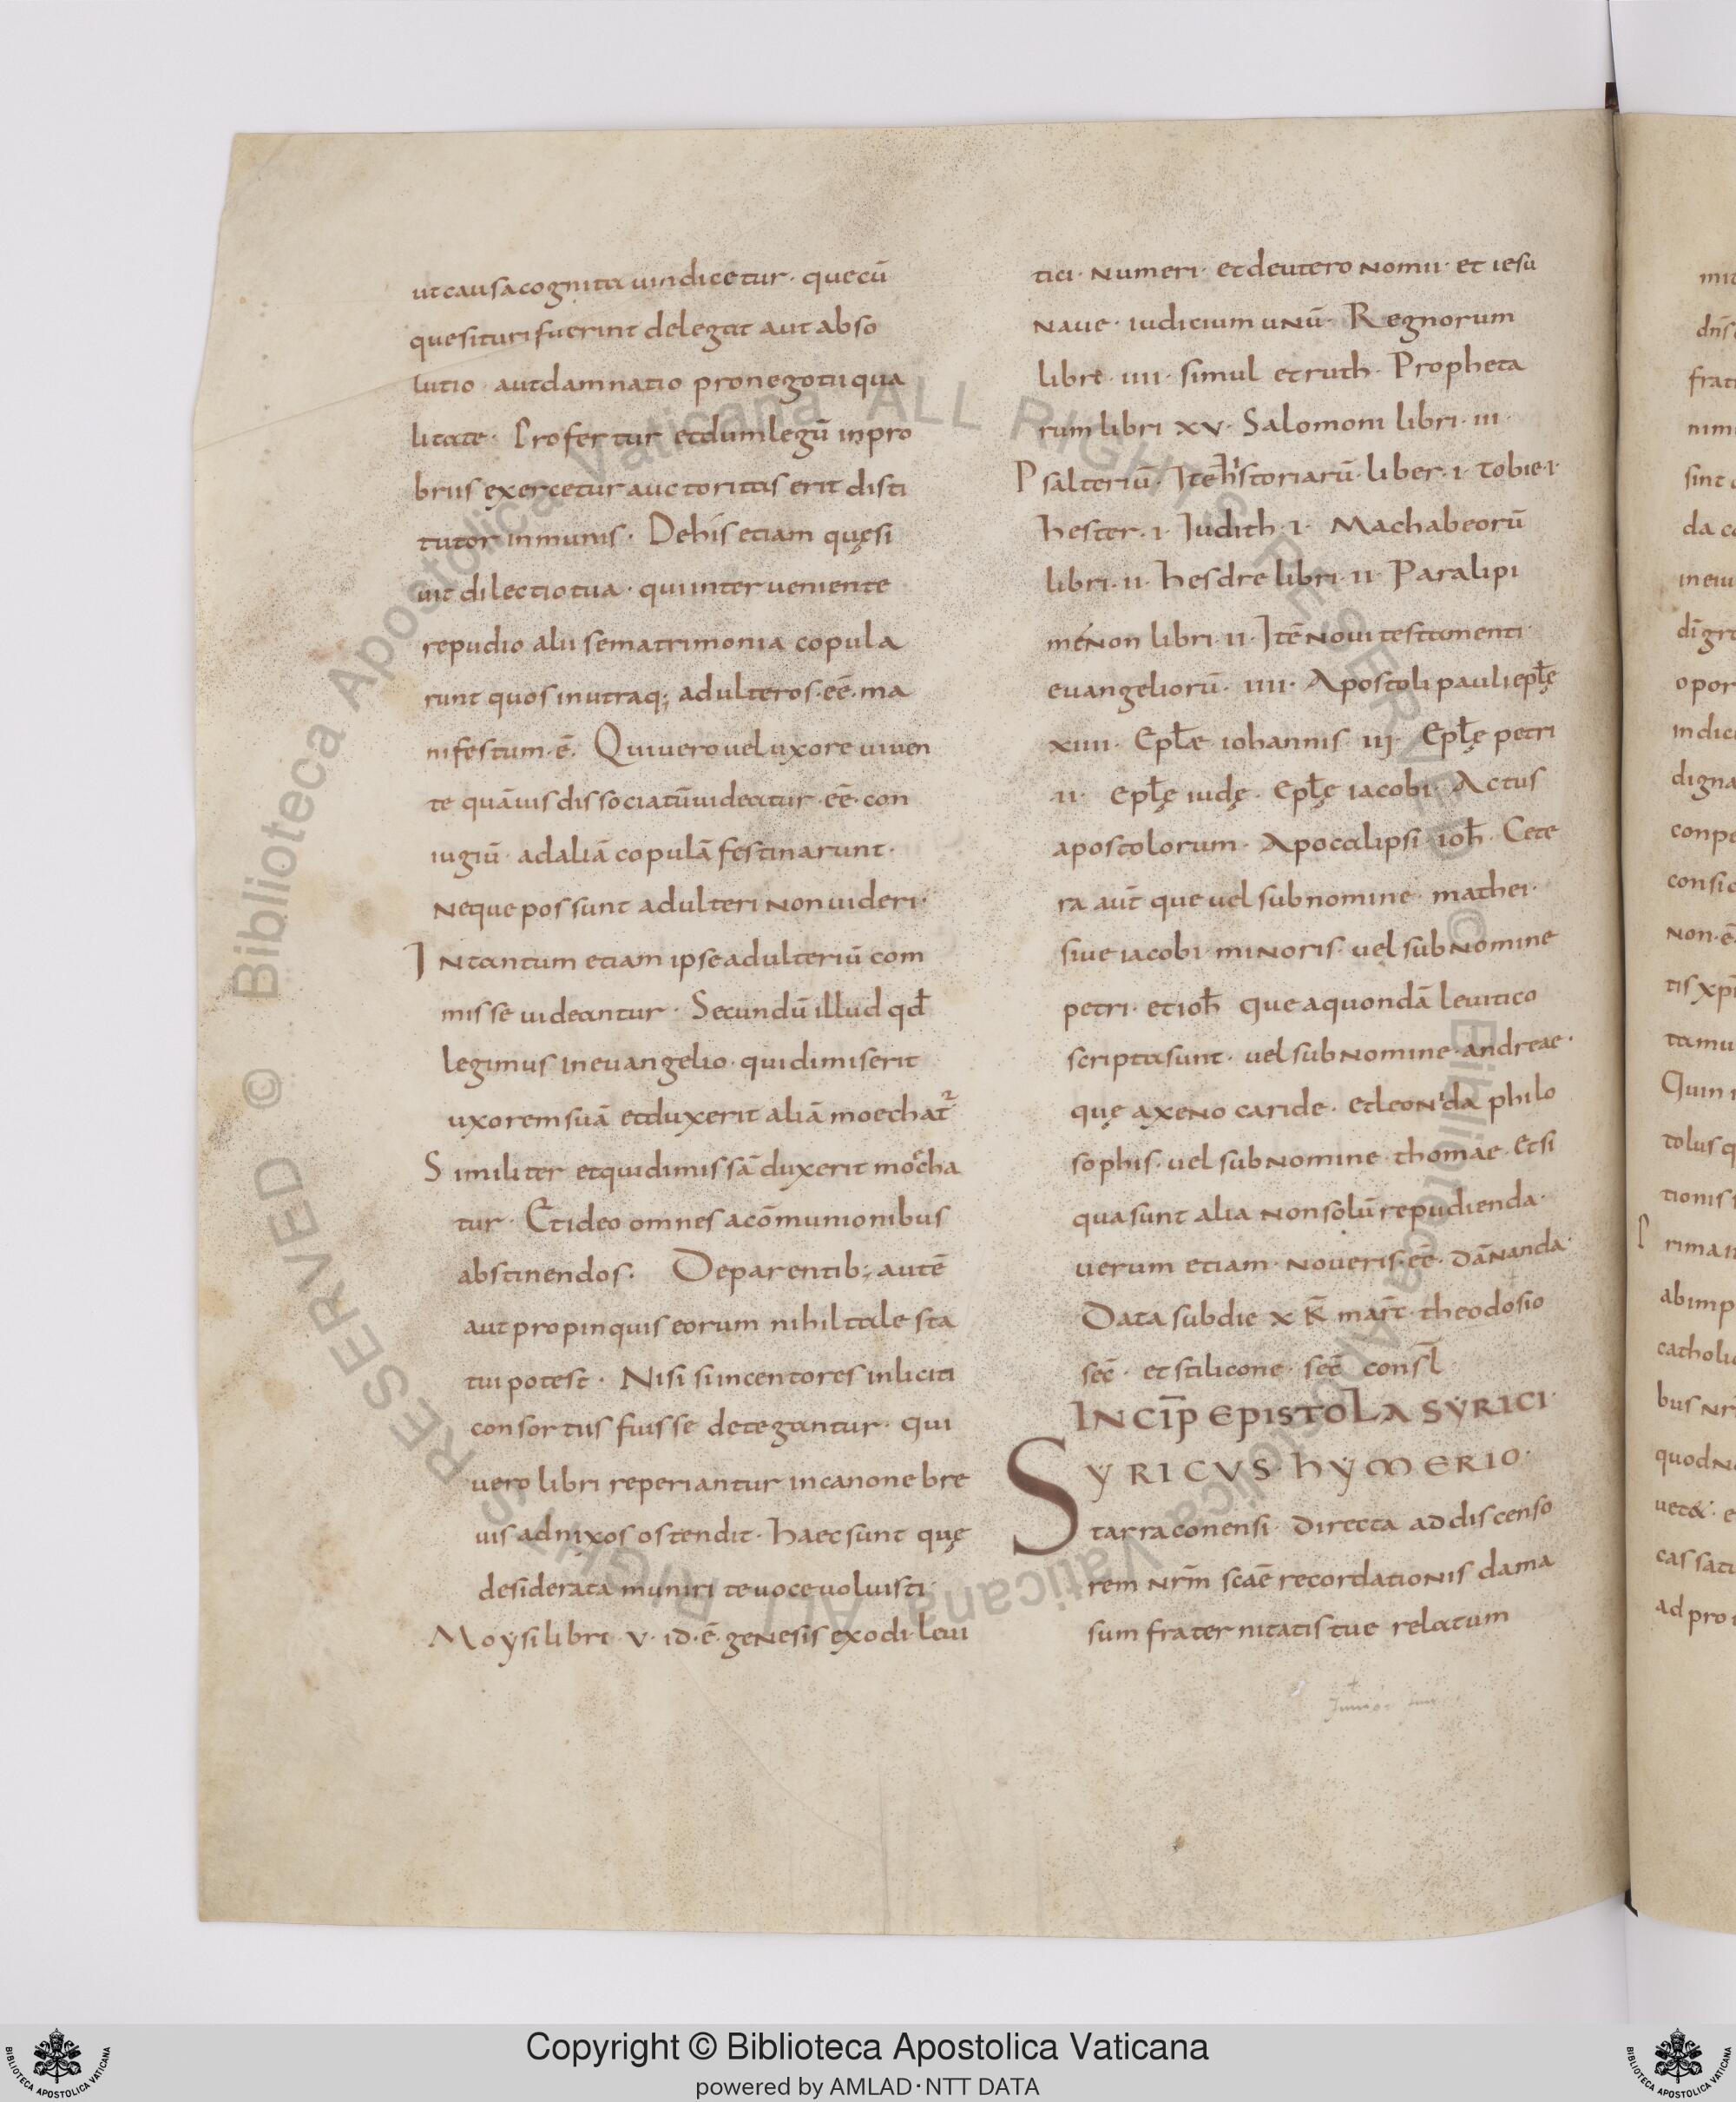 ut causa cognita uindicetur · quecū
quesituri fuerint delegat aut abso
lutio · aut damnatio pro negotii qua
litate · Profertur et dum legū inpro
briis exercetur auctoritas erit disti
tutor inmunis · De his etiam quęsi
uit dilectio tua · qui interueniente
repudio alii se matrimonia copula
runt quos in utraq; adulteros · eē · ma
nifestum · ē · Qui uero uel uxore uiuen
te quāuis dissociatū uideatur · eē · con
iugiū · ad aliā copulā festinarunt ·
Neque possunt adulteri non uideri ·
In tantum etiam ipse adulteriū com
misse uideantur · Secundū illud qđ
legimus in euangelio · qui dimiserit
uxorem suā et duxerit aliā moechat̄
Similiter et qui dimissā duxerit moecha
tur · Et ideo omnes a cōmunionibus
abstinendos · De parentib; autē
aut propinquis eorum nihil tale sta
tui potest · Nisi si incentores inliciti
consortiis fuisse detegantur · qui
uero libri reperiantur in canone bre
uis adnixos ostendit · haec sunt quę
desiderata muniri te uoce uoluisti ·
Moẏsi libri · v · id · ē · genesis exodi · leui
tici · Numeri · et deuteronomii · et iesu
Naue · iudicium unū · Regnorum
libre · iiii · simul et ruth · Propheta
rum libri xv · Salomoni libri · iii ·
Psalteriū · Itē historiarū · liber · i · Tobie · i ·
hester · i · Judith · i · Machabeorū
libri · ii · hesdre libri · ii · Paralipi
menon libri · ii · Itē Noui testamenti ·
euangeliorū · iiii · Apostoli pauli epłę
xiiii · Epłæ iohannis · iij · Epłę petri
ii · epłę iudę · Epłę iacobi · Actus
apostolorum · Apocalipsi · ioħ · Cete
ra aut̄ que uel sub nomine · mathei ·
siue iacobi · minoris · uel sub Nomine
petri · et ioħ que a quondā leuitico
scripta sunt · uel sub Nomine · andreae ·
quę a xeno caride · et leonida philo
sophis · uel sub Nomine · thomae · Et si
qua sunt alia non solū repudienda ·
uerum etiam · noueris · eē · dāNanda ·
Data sub die x k̄ mar̄t · theodosio
sec̄ · et stilicone · sec̄ consł
INCIP̄ EPISTOLA SẎRICI ·
SẎRICVS · HẎMERIO ·
tarraconensi · directa ad discenso
rem nr̄m scāe recordationis dama
sum fraternitatis tue relatum
Copyright © Biblioteca Apostolica Vaticana
powered by AMLAD·NTT DATA